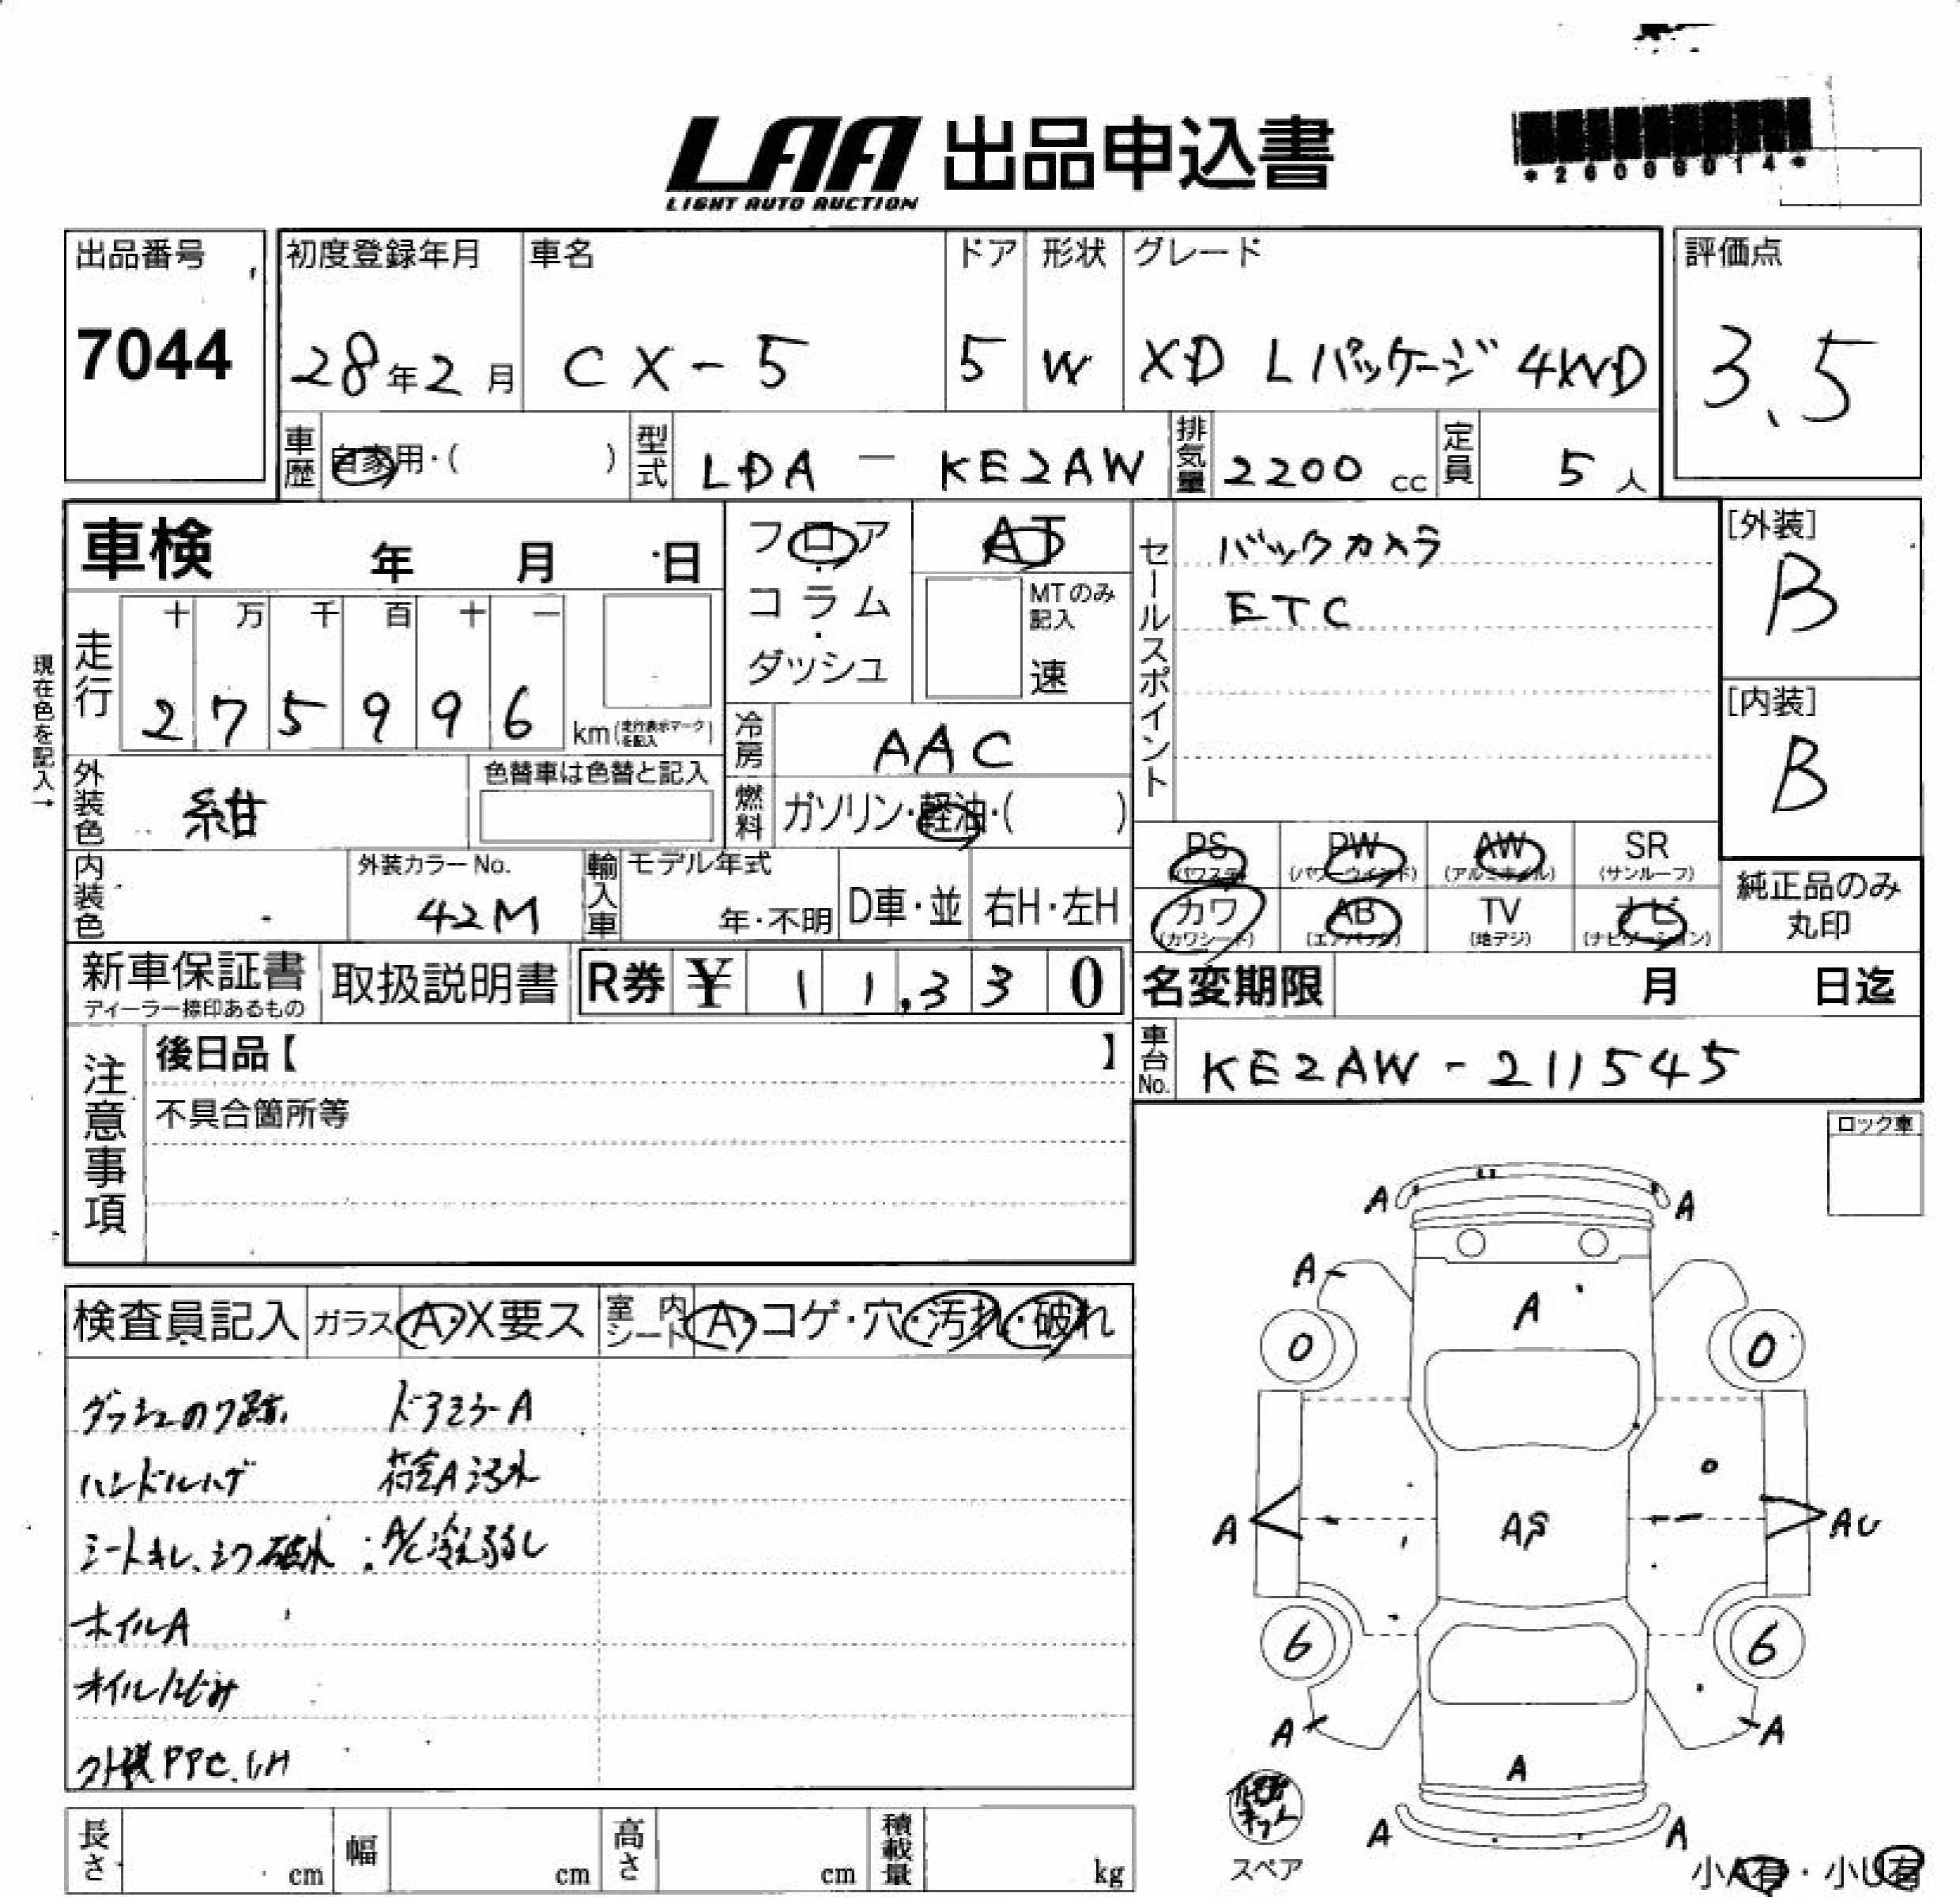 LAA 出品申込書
LIGHT AUTO AUCTION
*26009014*
出品番号
7044
初度登録年月
28年2月
車名
CX-5
ドア
5
形状
W
グレード
XD Lパッケージ 4WD
評価点
3.5
車歴
自家用・( )
型式
LDA - KE2AW
排気量
2200 cc
定員
5人
車検 年 月 日
フロア・コラム・ダッシュ
AT
MTのみ記入
速
セールスポイント
バックカメラ
ETC
[外装]
B
[内装]
B
現在色を記入→
走行
十 万 千 百 十 一
2 7 5 9 9 6
km(走行表示マークを記入)
冷房
AAC
外装色
紺
色替車は色替と記入
燃料
ガソリン・軽油・( )
内装色
外装カラーNo.
42M
輸入車
モデル年式
年・不明
D車・並
右H・左H
PS
(パワステ)
PW
(パワーウインド)
AW
(アルミホイル)
SR
(サンルーフ)
カワ
(カワシート)
AB
(エアバック)
TV
(地デジ)
ナビ
(ナビゲーション)
純正品のみ
丸印
新車保証書
ディーラー捺印あるもの
取扱説明書
R券 ¥ 11,330
名変期限 月 日迄
車台No.
KE2AW-211545
注意事項
後日品【 】
不具合箇所等
ロック車
検査員記入
ガラス
A・X要ス
室内シート
A・コゲ・穴・汚れ・破れ
ダッシュのり跡 ドアミラーA
ハンドルハゲ 荷室A汚れ
シートキレ、シワ破れ :A/C冷え弱し
ホイルA
オイルにじみ
外装PPC.UH
A A
A
A
0 0
A AS AU
6 6
A A
A
A A
スペア
小A有・小U有
長さ cm
幅 cm
高さ cm
積載量 kg